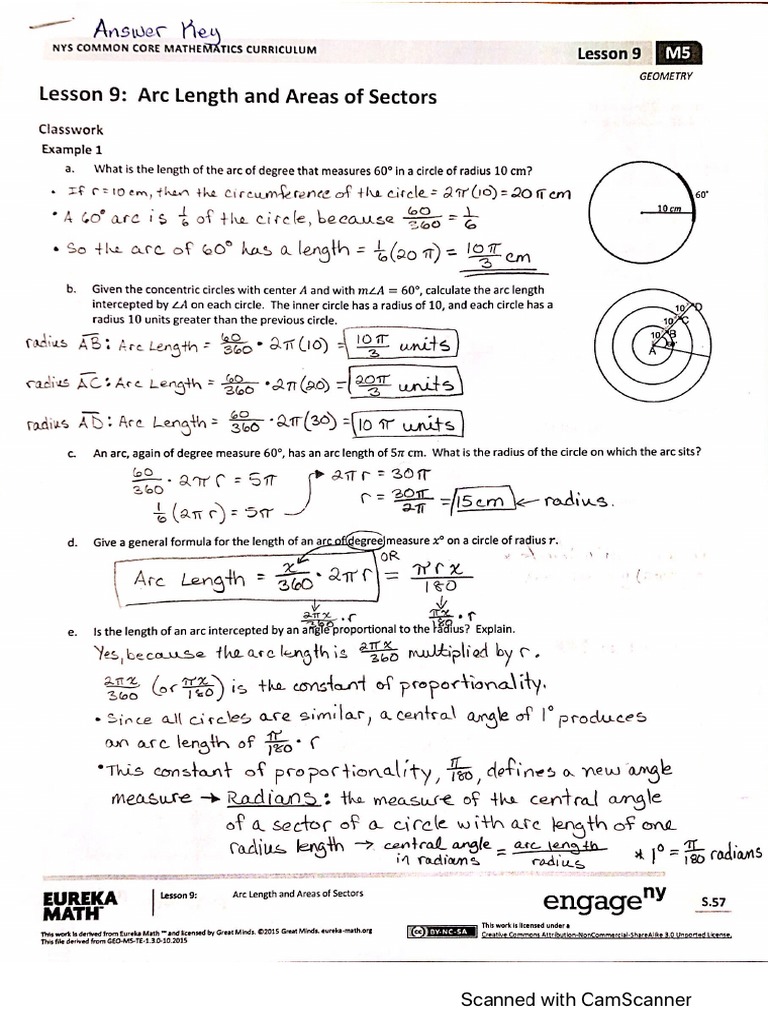 Answer Key
NYS COMMON CORE MATHEMATICS CURRICULUM
Lesson 9 M5
GEOMETRY
Lesson 9: Arc Length and Areas of Sectors
Classwork
Example 1
a. What is the length of the arc of degree that measures 60° in a circle of radius 10 cm?
• If r = 10 cm, then the circumference of the circle = 2π(10) = 20π cm
• A 60° arc is 1/6 of the circle, because 60/360 = 1/6
• So the arc of 60° has a length = 1/6(20π) = 10π/3 cm
60°
10 cm
b. Given the concentric circles with center A and with m∠A = 60°, calculate the arc length
intercepted by ∠A on each circle. The inner circle has a radius of 10, and each circle has a
radius 10 units greater than the previous circle.
radius AB: Arc Length = 60/360 • 2π(10) = 10π/3 units
radius AC: Arc Length = 60/360 • 2π(20) = 20π/3 units
radius AD: Arc Length = 60/360 • 2π(30) = 10π units
10 D
10 C
10 B
A
c. An arc, again of degree measure 60°, has an arc length of 5π cm. What is the radius of the circle on which the arc sits?
60/360 • 2πr = 5π
1/6(2πr) = 5π
2πr = 30π
r = 30π/2π = 15cm ← radius.
d. Give a general formula for the length of an arc of degree measure x° on a circle of radius r.
Arc Length = x/360 • 2πr OR = πrx/180
2πx/360 • r πx/180 • r
e. Is the length of an arc intercepted by an angle proportional to the radius? Explain.
Yes, because the arc length is 2πx/360 multiplied by r.
2πx/360 (or πx/180) is the constant of proportionality.
• Since all circles are similar, a central angle of 1° produces
an arc length of π/180 • r
• This constant of proportionality, π/180, defines a new angle
measure → Radians: the measure of the central angle
of a sector of a circle with arc length of one
radius length → central angle in radians = arc length/radius * 1° = π/180 radians
EUREKA MATH™
Lesson 9: Arc Length and Areas of Sectors
engage ny
S.57
This work is derived from Eureka Math ™ and licensed by Great Minds. ©2015 Great Minds. eureka-math.org
This file derived from GEO-M5-TE-1.3.0-10.2015
cc BY-NC-SA
This work is licensed under a
Creative Commons Attribution-NonCommercial-ShareAlike 3.0 Unported License.
Scanned with CamScanner